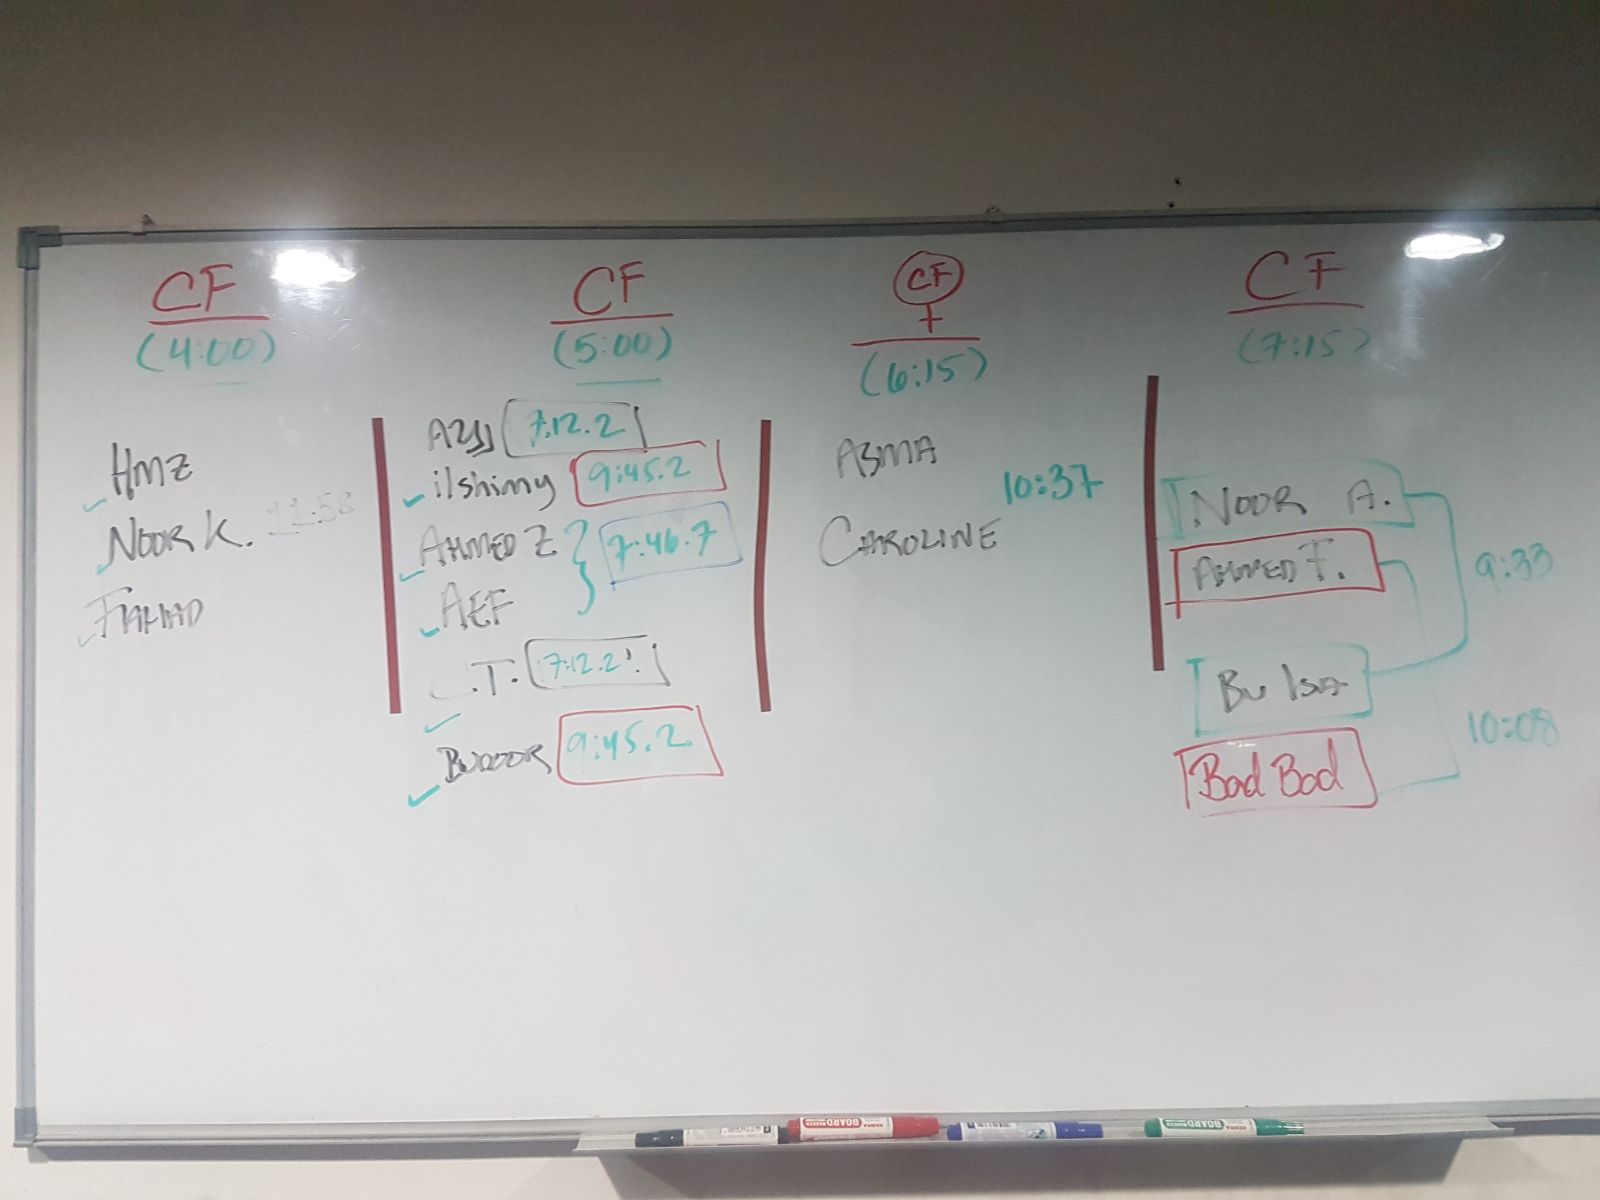 CF
(4:00)
HMZ
NOOR K. 11:58
FAHAD
CF
(5:00)
7:12.2
ilshimy 9:45.2
AHMED Z 7:46.7
AEF
.T. 7:12.2
BUNOOR 9:45.2
CF
(6:15)
ASMA
10:37
CAROLINE
CF
(7:15)
NOOR A.
AHMED F.
9:33
Bu Isa
10:08
Bad Bad
BOARD
BOARD